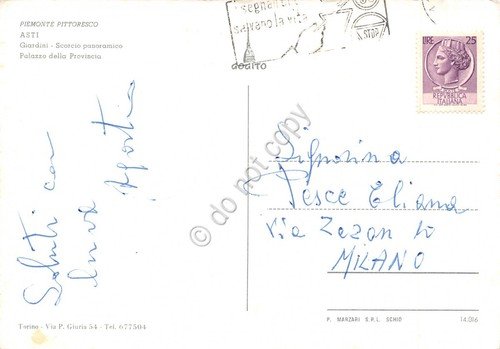 PIEMONTE PITTORESCO
ASTI
Giardini - Scorcio panoramico
Palazzo della Provincia
segnali
salvano la vita
STOP
LIRE 25
REPVBBLICA
ITALIANA
Saluti con
Agostia
Signorina
Pesce Eliana
Via Zezon 10
MILANO
© do not copy
Torino - Via P. Giuria 54 - Tel. 677504
P. MARZARI S.P.L. SCHIO
14.016